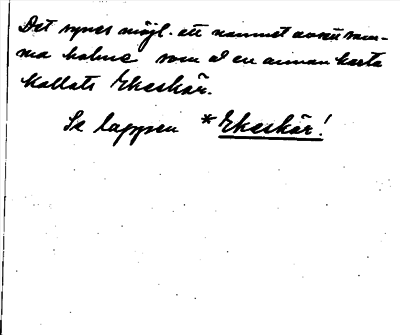 Det synes möjl. att namnet avsett sam-
ma holme som å en annan karta
kallats Ekeskär.
Se lappen *Ekeskär!